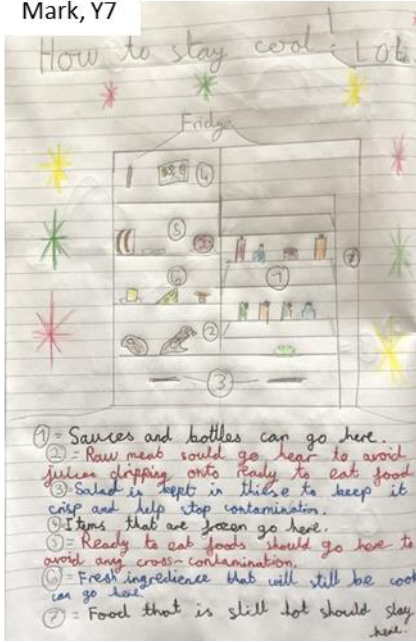 Mark, Y7
How to stay cool! LOL
Fridge
④
⑤
⑥
①
⑦
②
③
① = Sauces and bottles can go here.
② = Raw meat sould go hear to avoid
juices dripping onto ready to eat food
③ = Salad is kept in thiese to keep it
crisp and help stop contamination.
④ = Items that are frozen go here.
⑤ = Ready to eat foods should go here to
avoid any cross-contamination.
⑥ = Fresh ingredience that will still be cook
can go here.
⑦ = Food that is still hot should stay
here!